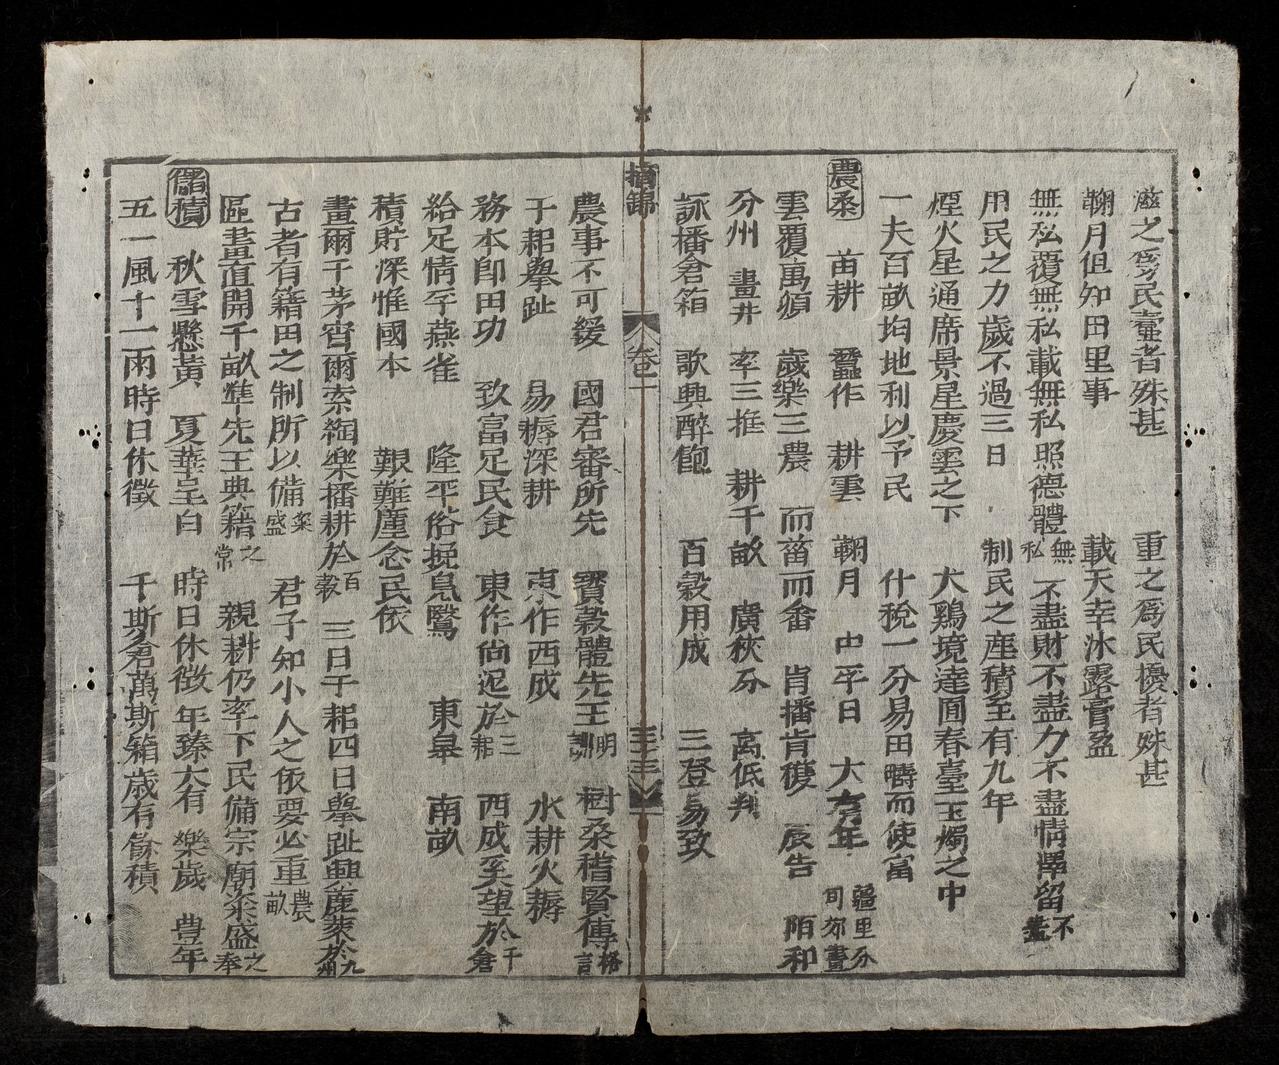 滋之爲民蠹者殊甚 重之爲民擾者殊甚
鞠月但知田里事 載天幸沐露膏盈
無私覆無私載無私照德體無私 不盡財不盡力不盡情澤留不盡
用民之力歲不過三日 制民之産積至有九年
煙火星通席景星慶雲之下 犬鷄境達囿春臺玉燭之中
一夫百畝均地利以予民 什稅一分易田疇而使富
農桑 苗耕 蠶作 耕雲 鞠月 中平日 大有年 疆里分 司郊畫
雲覆萬頃 歲樂三農 而菑而畬 肯播肯穫 辰告 陌和
分州 畫井 率三推 耕千畝 廣狹分 高低判
詠播倉箱 歌興醉飽 百穀用成 三登易致
摘錦 卷壱 三十三
農事不可緩 國君審所先 寶穀體先王明訓 樹桑稽賢傳格言
于耜擧趾 易耨深耕 東作西成 水耕火耨
務本卽田功 致富足民食 東作尚迟於三耜 西成奚望於千倉
給足情孚燕雀 隆平俗挽鳧鷖 東皐 南畝
積貯深惟國本 艱難廑念民依
晝爾于茅宵爾索綯樂播耕於百穀 三日于耜四日擧趾興鹿葵於九
古者有籍田之制所以備粢盛 君子知小人之依要必重農畝
區畫直開千畝準先王典籍之常 親耕仍率下民備宗廟粢盛之奉
儲積 秋雪懸黃 夏華呈白 時日休徵 年臻大有 樂歲 豊年
五一風十一雨時日休徵 千斯倉萬斯箱歲有餘積